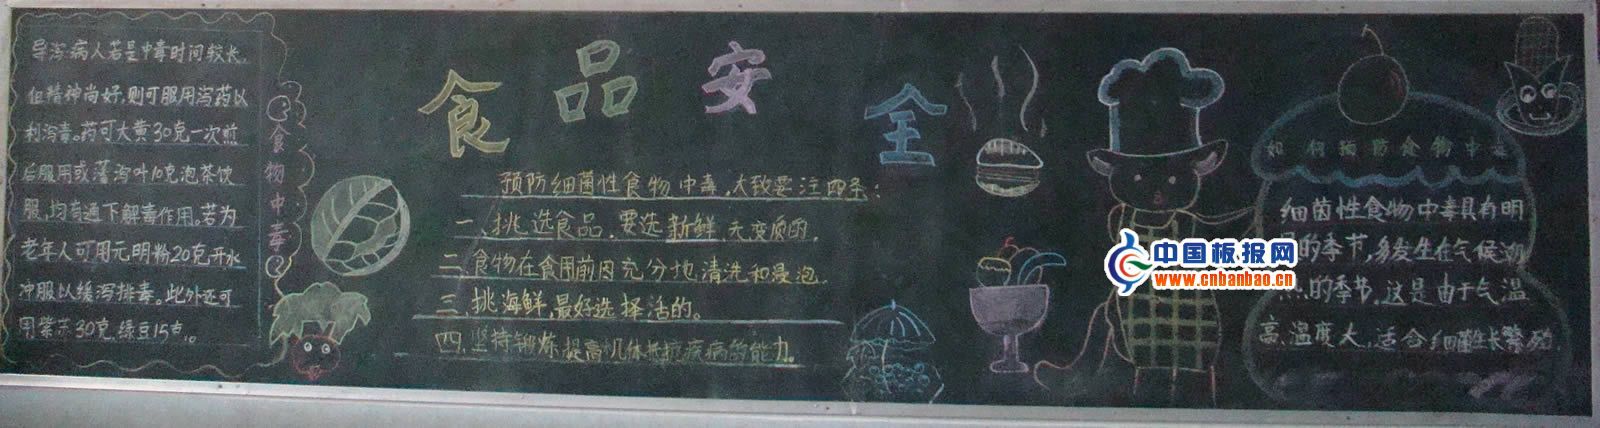 导泻:病人若是中毒时间较长,
但精神尚好,则可服用泻药以
利泻毒。药可大黄30克一次煎
后服用或藩泻叶10克泡茶饮
服,均有通下解毒作用。若为
老年人可用元明粉20克开水
冲服以缓泻排毒。此外还可
用紫苏30克,绿豆15克。
食物中毒
食品安全
预防细菌性食物中毒,大致要注四条:
一、挑选食品,要选新鲜、无变质的,
二、食物在食用前因充分地清洗和浸泡.
三、挑海鲜,最好选择活的。
四、坚持锻炼提高几体抵抗疾病的能力。
如何预防食物中毒
细菌性食物中毒具有明
显的季节,多发生在气候
的季节,这是由于气温
高、温度大,适合细菌生长繁殖
中国板报网
www.cnbanbao.cn